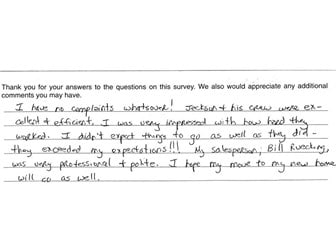 Thank you for your answers to the questions on this survey. We also would appreciate any additional
comments you may have.
I have no complaints whatsover! Jackson & his crew were ex-
cellent & efficient. I was very impressed with how hard they
worked. I didn't expect things to go as well as they did-
they exceeded my expectations!!! My salesperson, Bill Ruecking,
was very professional & polite. I hope my move to my new home
will go as well.